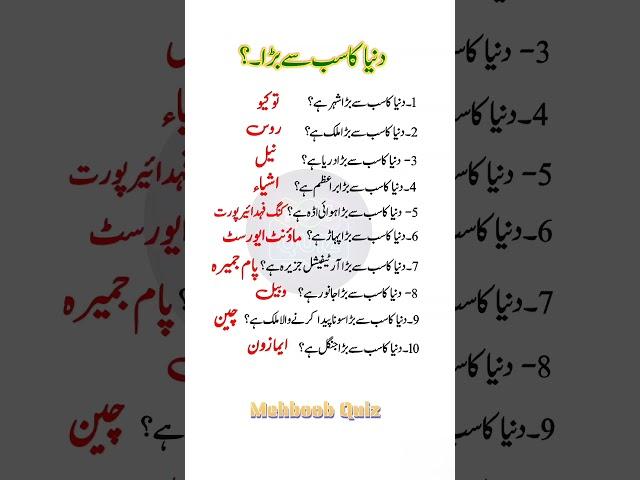 دنیا کا سب سے بڑا۔؟
1۔دنیا کا سب سے بڑا شہر ہے؟ ٹوکیو
2۔دنیا کا سب سے بڑا ملک ہے؟ روس
3- دنیا کا سب سے بڑا دریا ہے؟ نیل
4۔دنیا کا سب سے بڑا براعظم ہے؟ اشیاء
5- دنیا کا سب سے بڑا ہوائی اڈہ ہے؟ کنگ فہد ائیرپورٹ
6۔دنیا کا سب سے بڑا پہاڑ ہے؟ ماؤنٹ ایورسٹ
7۔دنیا کا سب سے بڑا آرٹیفیشل جزیرہ ہے؟ پام جمیرہ
8- دنیا کا سب سے بڑا جانور ہے؟ وہیل
9۔دنیا کا سب سے بڑا سونا پیدا کرنے والا ملک ہے؟ چین
10۔دنیا کا سب سے بڑا جنگل ہے؟ ایمازون
Mehboob Quiz
3- دنیا کا س
4۔دنیا کا سب
5- دنیا کا سب
6۔دنیا کا سب
7۔دنیا کا سب
8- دنیا کا سب
9۔دنیا کا سب
یل
یاء
فہد ائیرپورٹ
ایورسٹ
؟ پام جمیرہ
ہے؟ چین